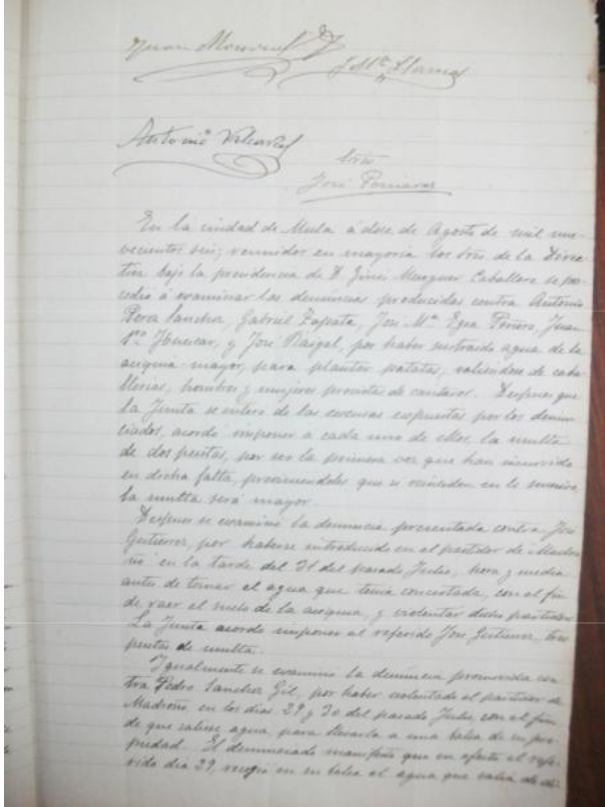 Juan
J Mª Llamas
Antonio Valcarcel
José
En la ciudad de Mula á doce de Agosto de mil nue-
vecientos seis; reunidos en mayoria los Sres de la Direc-
tiva bajo la presidencia de D. Ginés Mesguer Caballero se pro-
cedió á examinar las denuncias producidas contra Antonio
Perez Sanchez, Gabriel Zapata, José Mª Egea Peñero, Juan
y José por haber sustraido agua de la
acequia mayor, para plantar patatas, valiendose de caba-
llerias, hombres y mujeres provistas de cantaros. Despues que
la Junta se enteró de las excusas expuestas por los denun-
ciados, acordó imponer a cada uno de ellos, la multa
de dos pesetas, por ser la primera vez que han incurrido
en dicha falta, previniendoles que si reinciden en lo sucesivo
la multa será mayor.
Despues se examinó la denuncia presentada contra José
Gutierrez, por haberse introducido en el partidor de
en la tarde del 31 del pasado Julio, hora y media
antes de tomar el agua que tenia concertada, con el fin
de raer el suelo de la acequia, y violentar dicho partidor
La Junta acordó imponer al referido José Gutierrez, tres
pesetas de multa.
Igualmente se examinó la denuncia promovida con-
tra Pedro Sanchez Gil, por haber violentado el partidor de
Madroño en los dias 29 y 30 del pasado Julio, con el fin
de que saliese agua, para llevarla a una balsa de su pro-
piedad. El denunciado manifestó que en efecto el refe-
rido dia 29, recogió en su balsa el agua que salia de